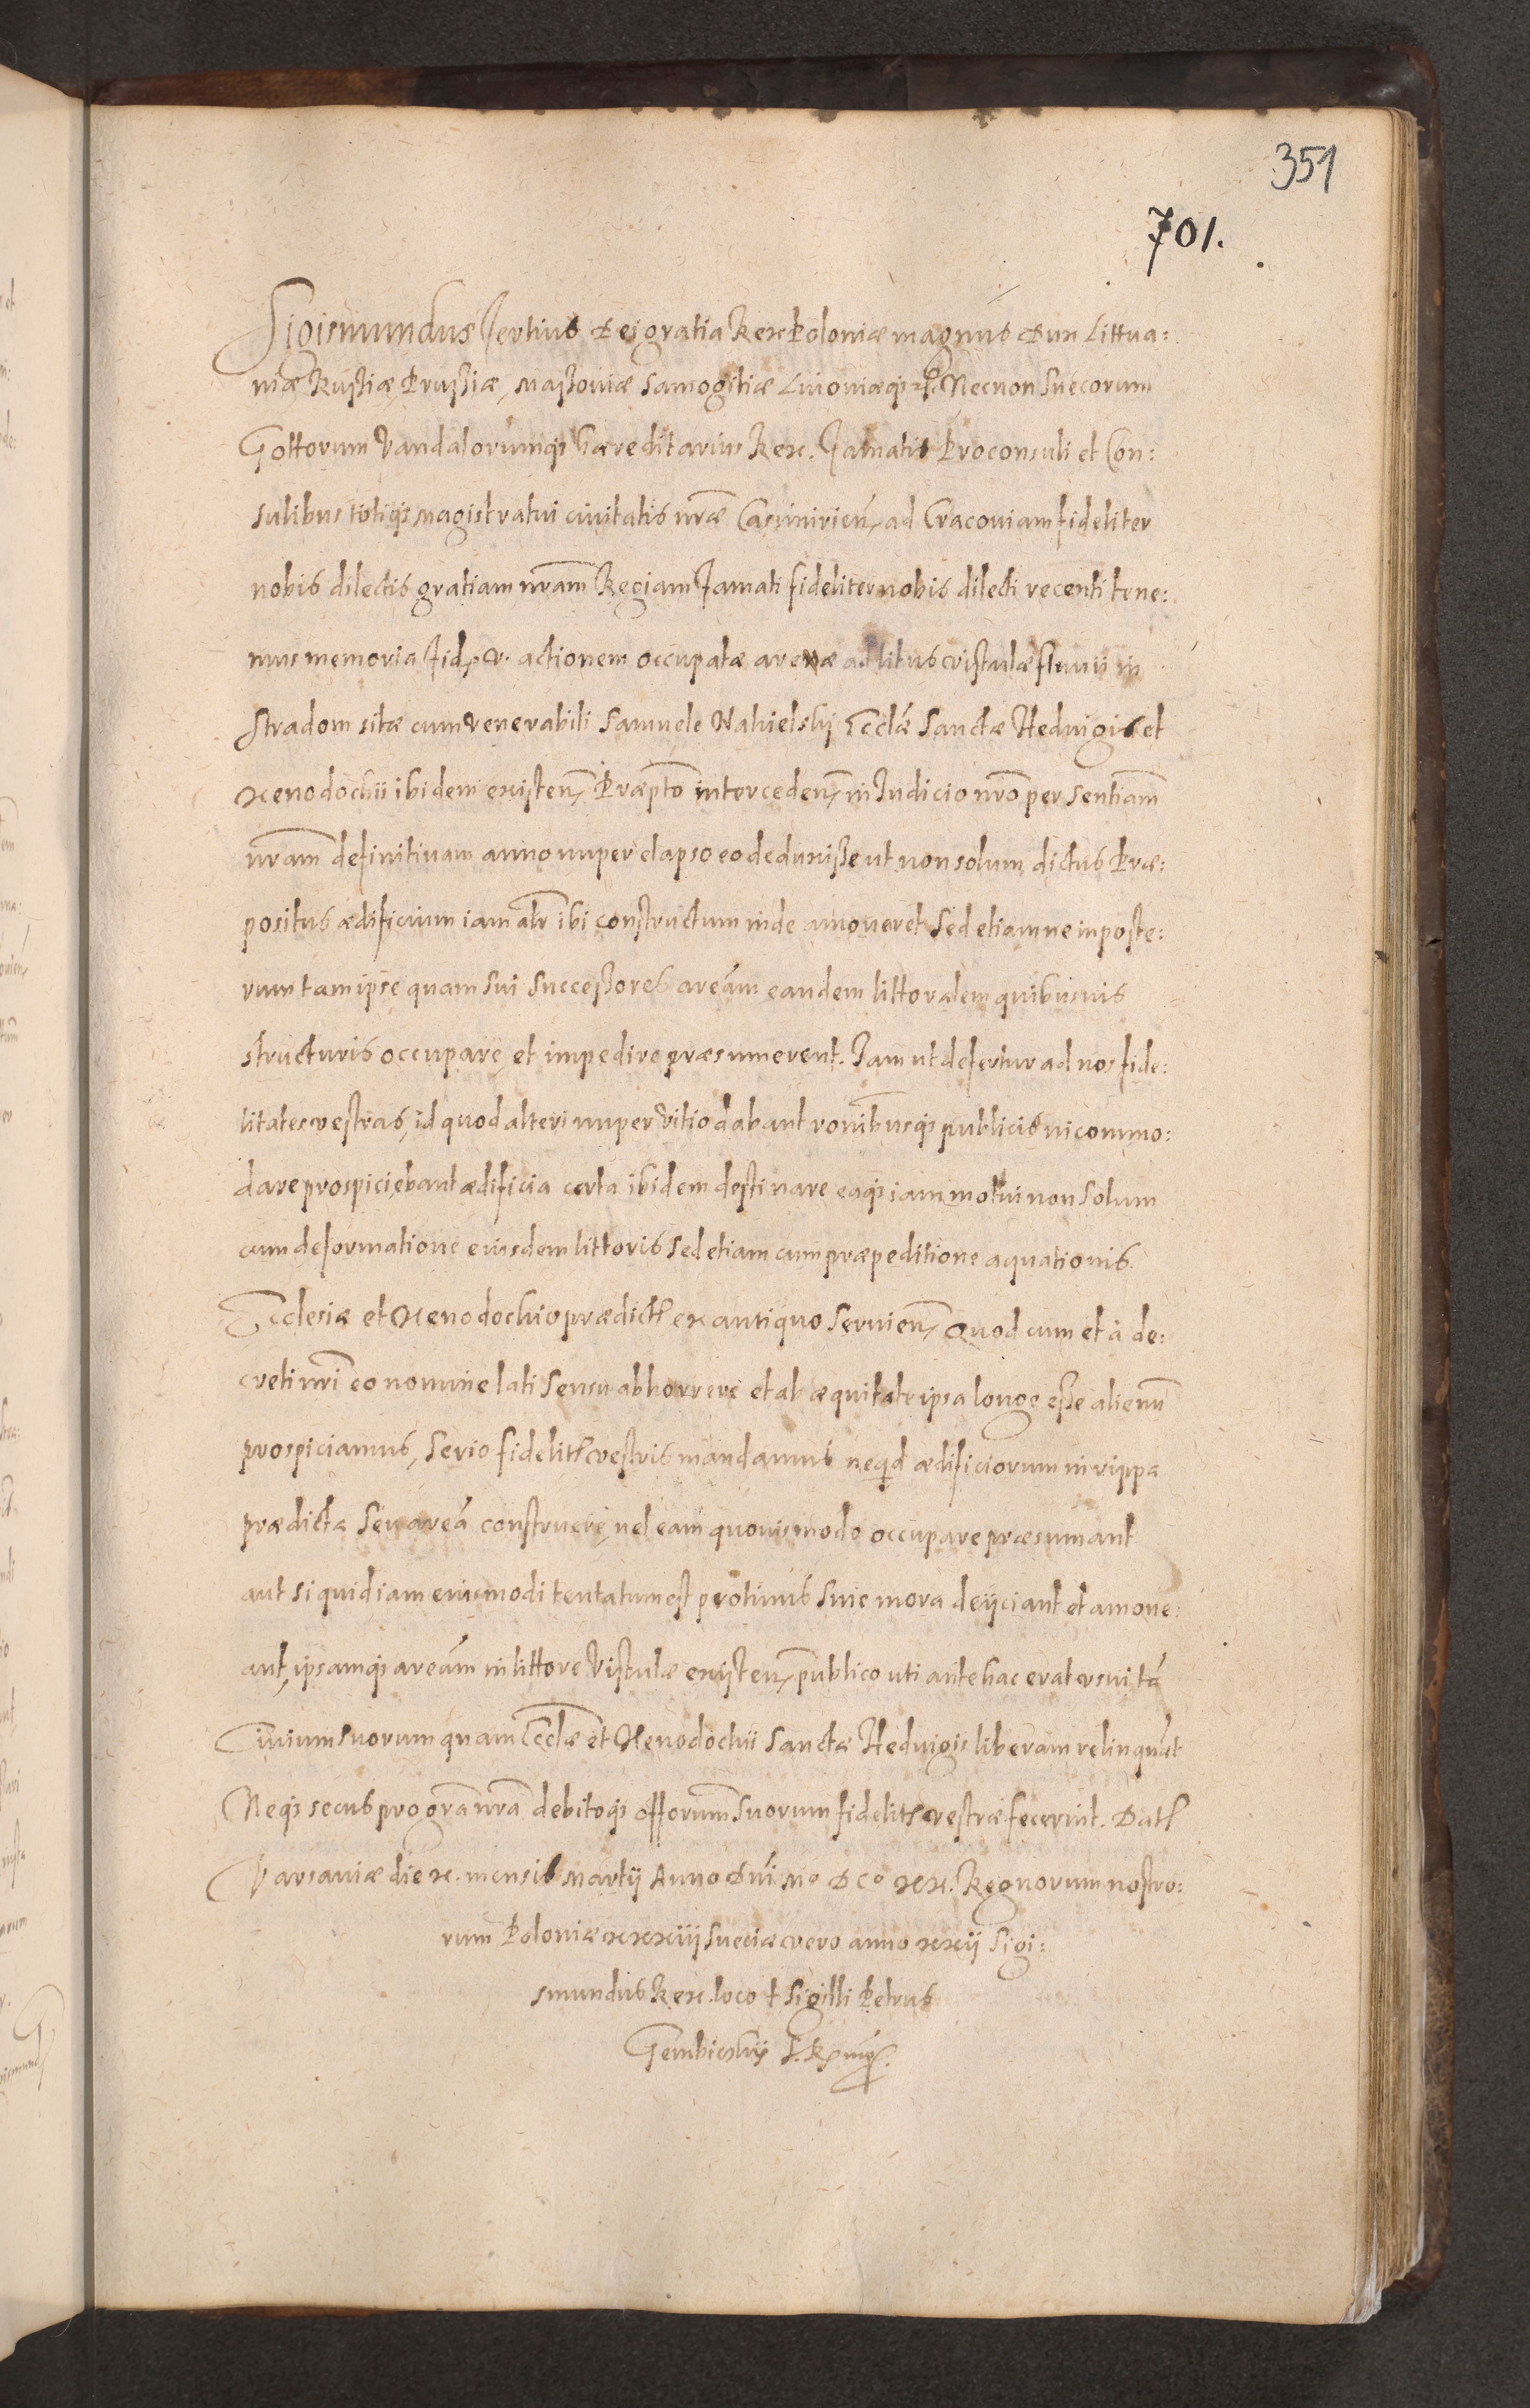 351
701.
Sigismundus Tertius Dei gratia Rex Poloniæ magnus Dux Littua:
niæ Russiæ Prussiæ, Massoviæ Samogitiæ Livoniæq₃ Necnon Suecorum
Gottorum Vandalorumq₃ hæreditarius Rex. Famatis Proconsuli et Con:
sulibus totiq₃ magistratui civitatis nræ Casimirien, ad Cracoviam fideliter
nobis dilectis gratiam nram Regiam Famati fideliter nobis dilecti recenti tene:
mus memoria Fid. v. actionem occupatæ arenæ ad litus vistulæ fluvii in
Stradom sitæ cum venerabili Samuele Nahielski Ecclæ Sanctæ Hedvigis et
Xenodochii ibidem existen, Præpto interceden, in Iudicio nro per sentiam
nram definitivam anno nuper elapso eo deduxisse ut non solum dictus Præ:
positus ædificium iam alr ibi constructum inde amoveret sed etiam ne in poste:
rum tam ipse quam sui successores aream eandem littoralem quibusvis
structuris occupare, et impedire præsumerent. Iam ut defertur ad nos fide:
litates vestras, id quod alteri nuper vitio dabant ronibusq₃ publicis incommo:
dare prospiciebant ædificia certa ibidem destinare eaq₃ iam non solum
cum deformatione eiusdem littoris sed etiam cum præpeditione aquationis
Ecclesiæ et Xenodochio prædict ex antiquo servien, Quod cum et à de:
creti nri eo nomine lati sensu abhorrere et ab æquitate ipsa longe esse alienū
prospiciamus, serio fidelit vestris mandamus neqd ædificiorum in rippa
prædicta seu areā construere, vel eam quovis modo occupare præsumant
aut si quid iam eiusmodi tentatum est protinus sine mora deijciant et amove:
ant, ipsamq₃ aream in littore Vistulæ existen, publico uti antehac erat usui tā
Civium suorum quam Ecclæ et Xenodochii Sanctæ Hedvigis liberam relinquāt
Neq₃ secus pro gra nra debitoq₃ offorum suorum fidelit vestræ fecerint. Dat
Varsaviæ die x. mensis Martij Anno Dni Mo DCo XX. Regnorum nostro:
rum Poloniæ xxxiij Sueciæ vero anno xxvij Sigi:
smundus Rex. loco † Sigilli Petrus
Gembicskij